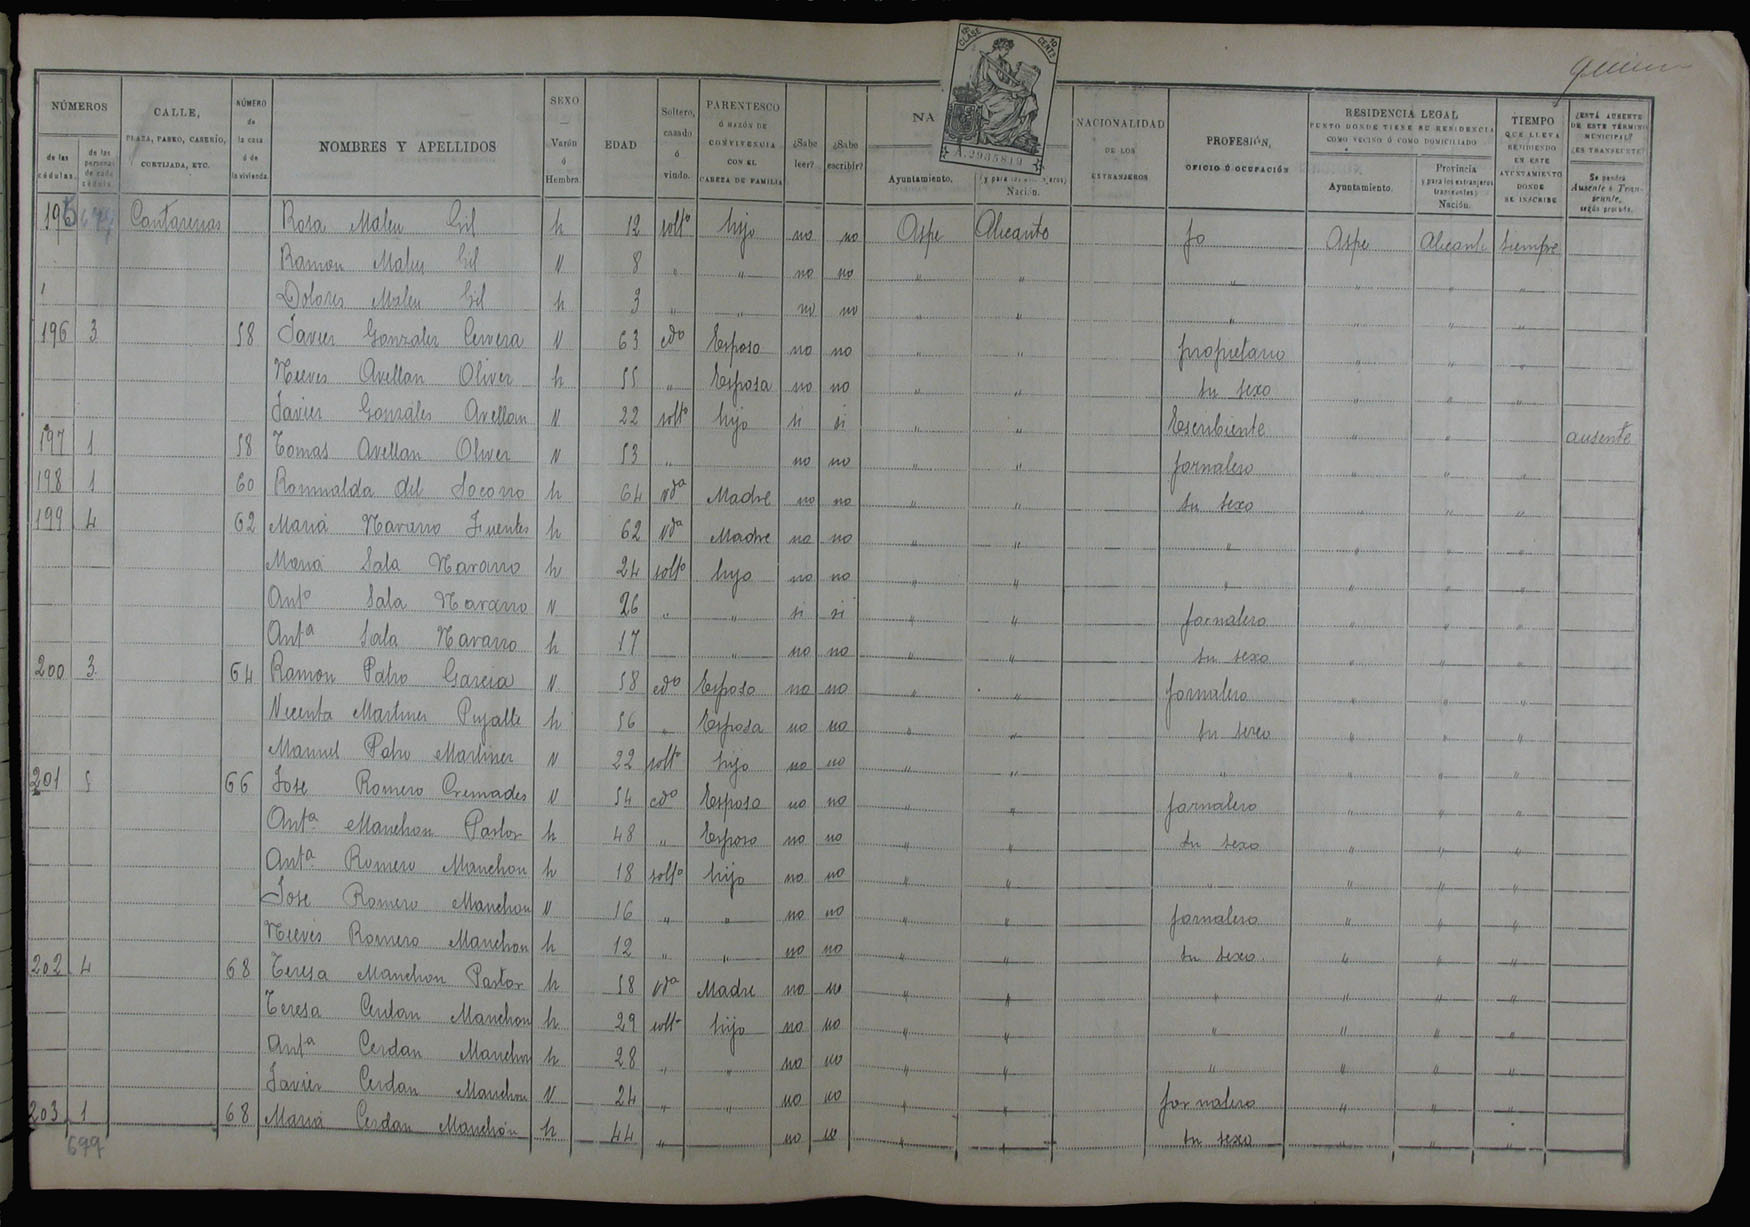 18ª CLASE 10 CENTS
A.2935819
NÚMEROS
de las cédulas.
de las personas de cada cédula.
CALLE, PLAZA, PASEO, CASERÍO, CORTIJADA, ETC.
NÚMERO de la casa ó de la vivienda
NOMBRES Y APELLIDOS
SEXO — Varón ó Hembra.
EDAD
Soltero, casado ó viudo.
PARENTESCO Ó RAZÓN DE CONVIVENCIA CON EL CABEZA DE FAMILIA
¿Sabe leer?
¿Sabe escribir?
NA
Ayuntamiento.
Nación.
NACIONALIDAD DE LOS EXTRANJEROS
PROFESIÓN, OFICIO Ó OCUPACIÓN
RESIDENCIA LEGAL
PUNTO DONDE TIENE SU RESIDENCIA COMO VECINO Ó COMO DOMICILIADO
Ayuntamiento.
Provincia (y para los extranjeros transeuntes) Nación.
TIEMPO QUE LLEVA RESIDIENDO EN ESTE AYUNTAMIENTO DONDE SE INSCRIBE
¿ESTÁ AUSENTE DE ESTE TÉRMINO MUNICIPAL? ¿ES TRANSEUNTE?
Se pondrá Ausente ó Transeunte, según proceda.
195 Cantarerias Rosa Maleu Gil h 12 solto hijo no no Aspe Alicante Aspe Alicante siempre
Ramon Maleu Gil V 8 " " no no " " " " " "
Dolores Maleu Gil h 3 " " no no " " " " " "
196 3 58 Javier Gonzales Cervera V 63 cdo Esposo no no " " propietario " " "
Nieves Avellan Oliver h 55 " Esposa no no " " su sexo " " "
Javier Gonzáles Avellan V 22 solto hijo si si " " Escribiente " " ausente
197 1 58 Tomas Avellan Oliver V 53 " no no " " jornalero " " "
198 1 60 Romualda del Socorro h 64 vda Madre no no " " su sexo " " "
199 4 62 Maria Navarro Fuentes h 62 vda Madre no no " " " " " "
Maria Sala Navarro h 24 solto hijo no no " " " " " "
Anto Sala Navarro V 26 " " si si " " jornalero " " "
Anta Sala Navarro h 17 " no no " " su sexo " " "
200 3 64 Ramon Patro Garcia V 58 cdo Esposo no no " " jornalero " " "
Vicenta Martines Pujalte h 56 " Esposa no no " " su sexo " " "
Manuel Patro Martines V 22 solto hijo no no " " " " " "
201 5 66 Jose Romero Cremades V 54 cdo Esposo no no " " jornalero " " "
Anta Manchon Pastor h 48 " Esposo no no " " su sexo " " "
Anta Romero Manchon h 18 solto hijo no no " " " " " "
Jose Romero Manchon V 16 " " no no " " jornalero " " "
Nieves Romero Manchon h 12 " " no no " " su sexo " " "
202 4 68 Teresa Manchon Pastor h 58 vda Madre no no " " " " " "
Teresa Cerdan Manchon h 29 solt hijo no no " " " " " "
Anta Cerdan Manchon h 28 " " no no " " " " " "
Javier Cerdan Manchon V 24 " " no no " " jornalero " " "
203 1 68 Maria Cerdan Manchón h 44 " no no " " su sexo " " "
699